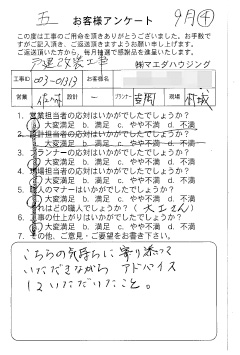 五 お客様アンケート 9月④
この度は工事のご用命を頂きありがとうございました。お手数で
すがご記入頂き、ご返送頂きますようお願い申し上げます。
ご返送頂いた方から、毎月抽選で感謝品を進呈いたします。
戸建改装工事 ㈱マエダハウジング
工事ID 003-01313 お客様名
営業 設計 － プランナー 現場
1. 営業担当者の応対はいかがでしたでしょうか？
a. 大変満足 b. 満足 c. やや不満 d. 不満
2. 設計担当者の応対はいかがでしたでしょうか？
a. 大変満足 b. 満足 c. やや不満 d. 不満
3. プランナーの応対はいかがでしたでしょうか？
a. 大変満足 b. 満足 c. やや不満 d. 不満
4. 現場担当者の応対はいかがでしたでしょうか？
a. 大変満足 b. 満足 c. やや不満 d. 不満
5. 職人のマナーはいかがでしたでしょうか？
a. 大変満足 b. 満足 c. やや不満 d. 不満
それはどの職人でしょうか？（大工さん）
6. 工事の仕上がりはいかがでしたでしょうか？
a. 大変満足 b. 満足 c. やや不満 d. 不満
7. その他、ご意見・ご要望をお書き下さい。
こちらの気持ちに寄り添って
いただきながら アドバイス
していただいたこと。